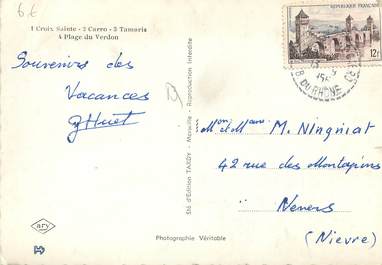 6.€
1 Croix Sainte - 2 Carro - 3 Tamaris
4 Plage du Verdon
REPUBLIQUE FRANÇAISE
12F
B. DU RHONE
Souvenirs des
Vacances
JHuet
Sté d'Edition TARDY - Marseille - Reproduction Interdite
Mon et Mme M. Ningniat
42 rue des Montapins
Nevers
(Nievre)
ary
Photographie Véritable